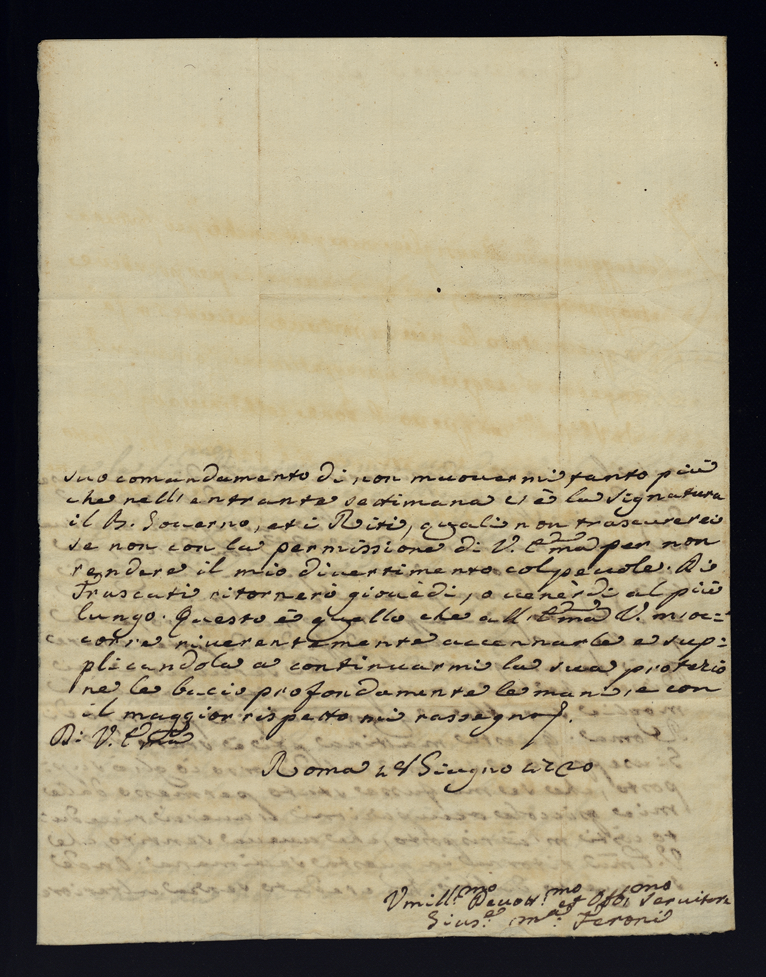 suo comandamento di non muovermi, tanto più
che nell'entrante settimana vi è la Signatura
il B. Governo, et i Riti, quali non trascurerei
se non con la permissione di V. Em̃a per non
rendere il mio divertimento colpevole. Di
Frascati ritornerò giovedì, o venerdì al più
lungo. Questo è quello che all'Em̃a V. m'oc=
corre riverentemente accennarle e sup=
plicandola a continuarmi la sua protezio
ne le bacio profondamente le mani, e con
il maggior rispetto mi rassegno
Di V. Em̃a
Roma Giugno
Vmill.mo Devot.mo et Obb.mo Servitore
Gius.e M.a Feroni